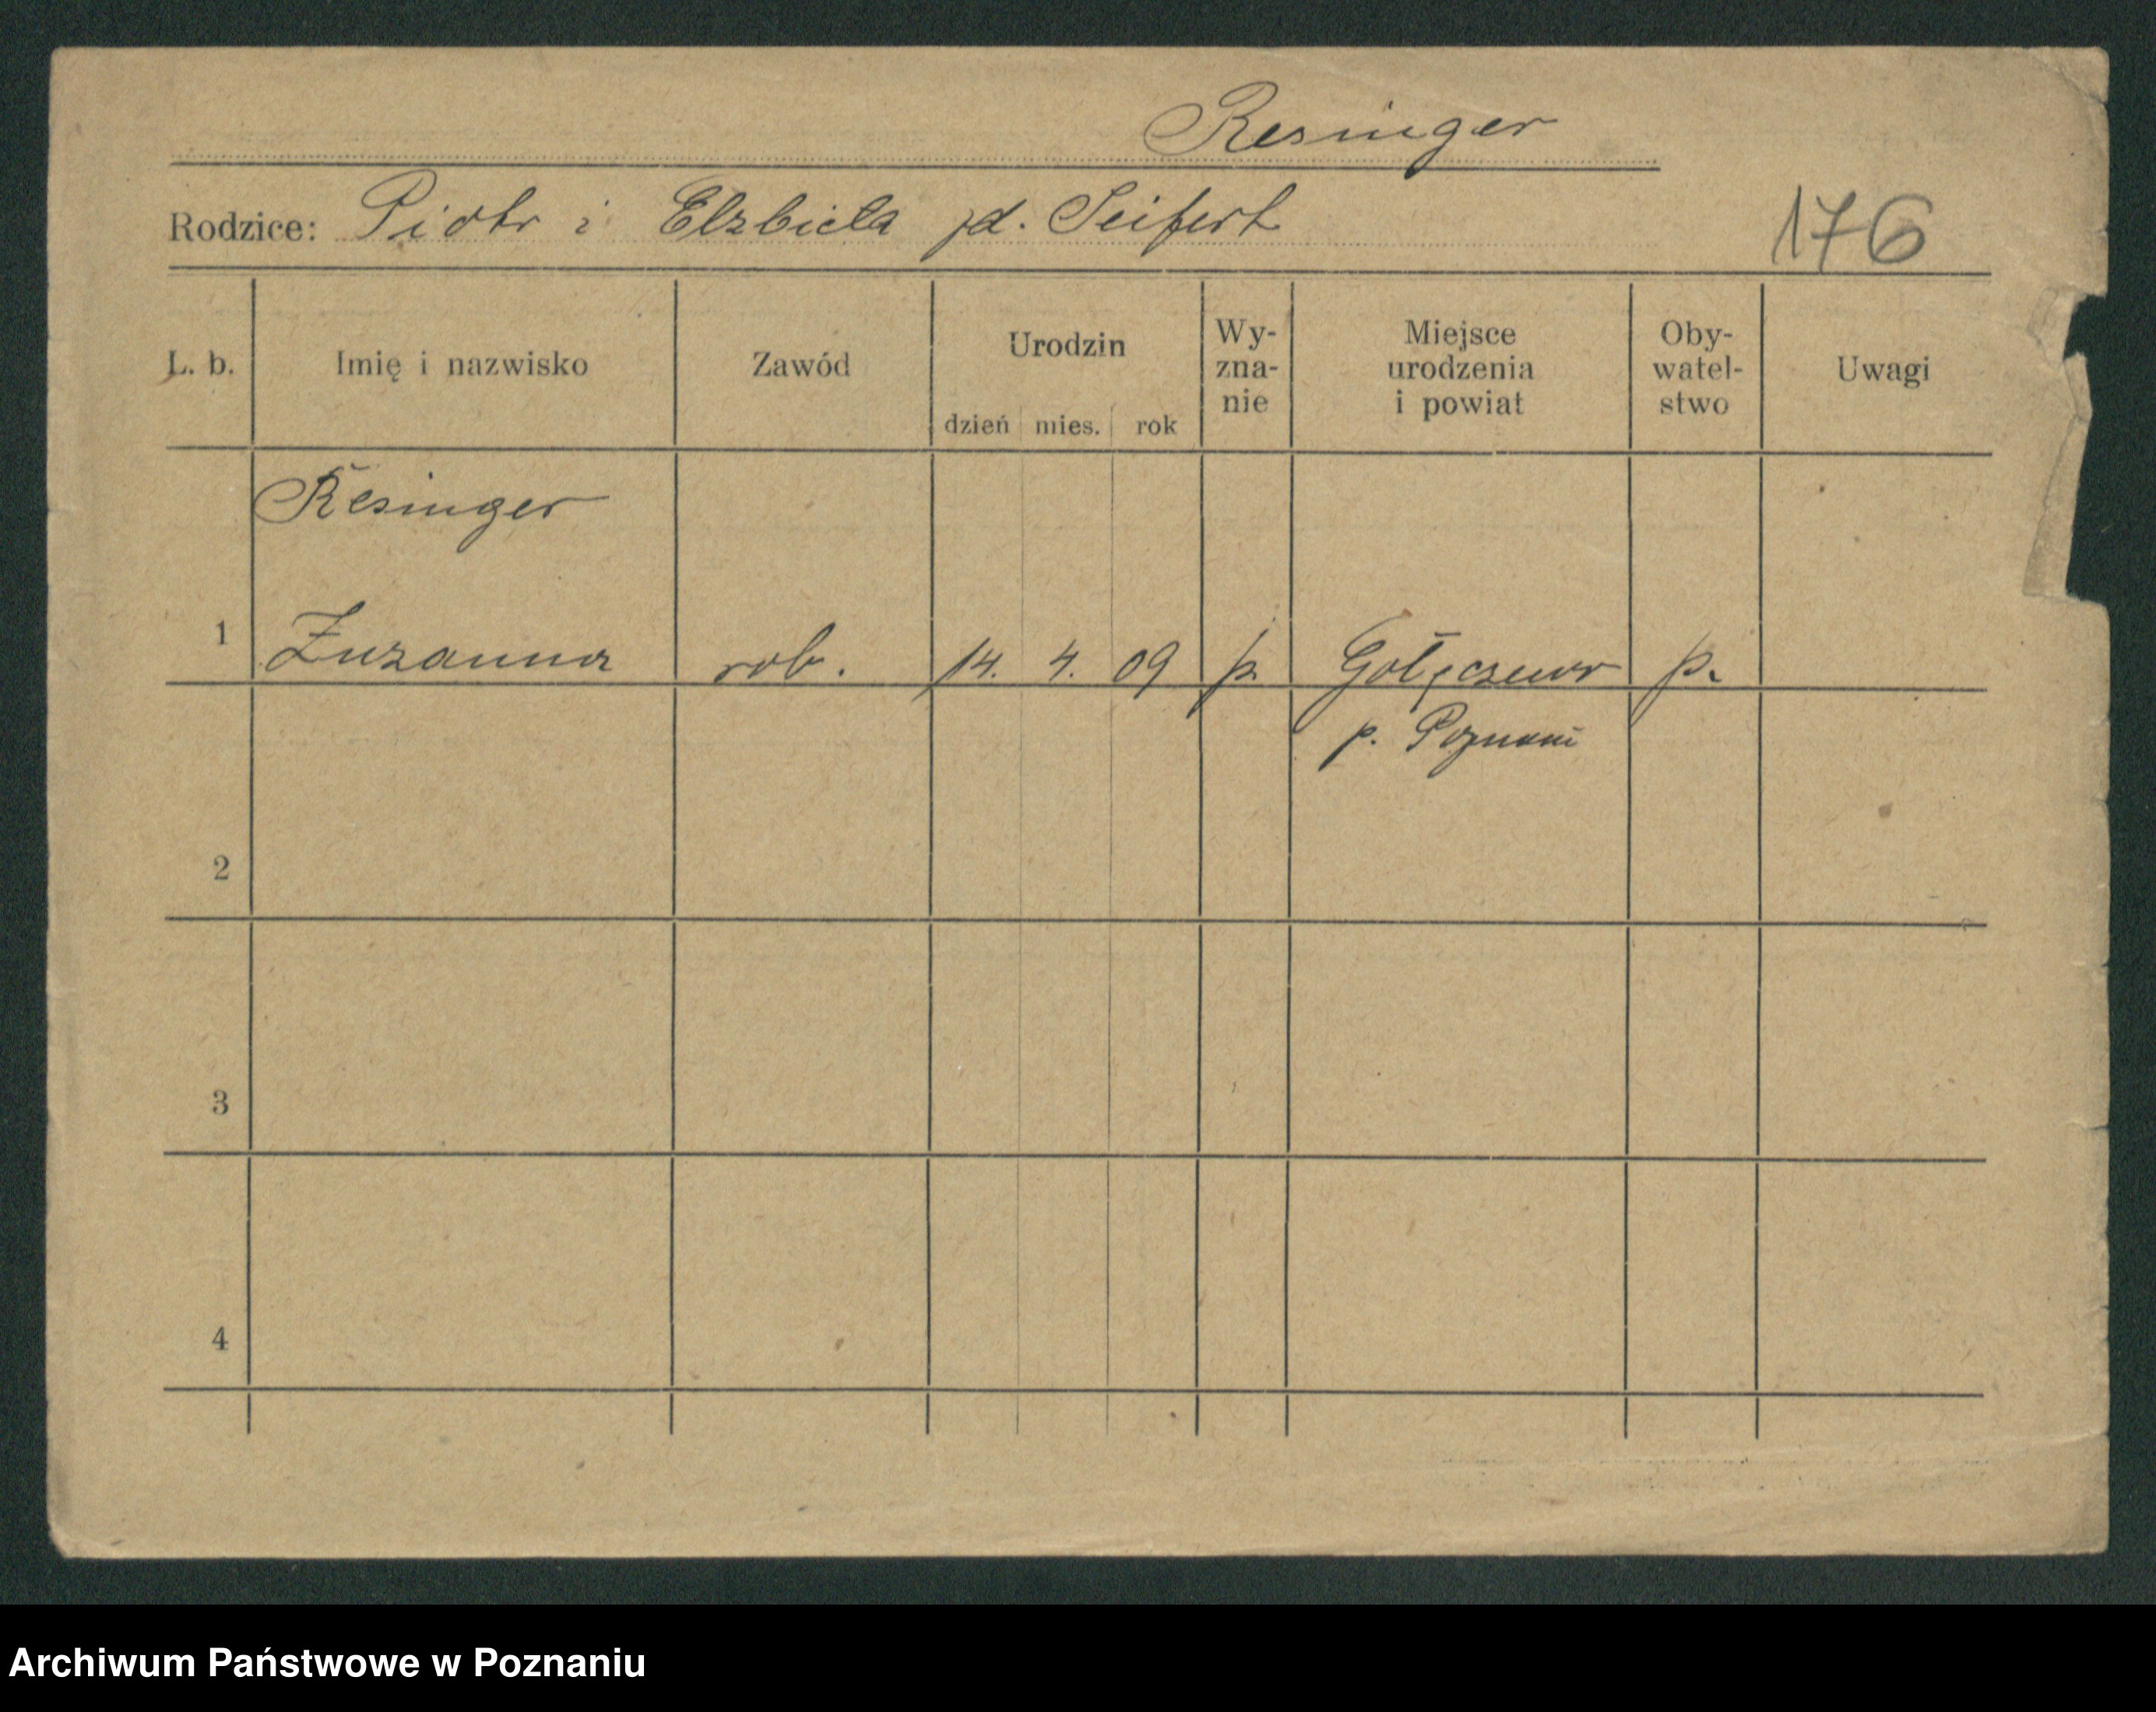 Resinger
Rodzice: Piotr i Elzbieta zd. Seifert
176
L. b. Imię i nazwisko Zawód Urodzin dzień mies. rok Wy-zna-nie Miejsce urodzenia i powiat Oby-watel-stwo Uwagi
Resinger
1 Zuzanna rob. 14. 4. 09 p. Gołęczewo p.
p. Poznań
2
3
4
Archiwum Państwowe w Poznaniu